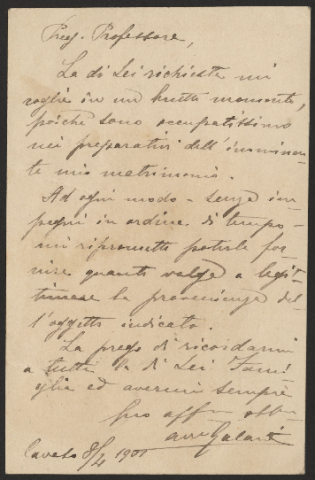 Preg. Professore,
La di Lei richiesta mi
coglie in un brutto momento,
poichè sono occupatissimo
nei preparativi dell'imminen-
te mio matrimonio.
Ad ogni modo - senza im-
pegni in ordine di tempo -
mi riprometto poterle for-
nire quanto valga a legit-
timare la provenienza del-
l'oggetto indicato.
La prego di ricordarmi
a tutti la di Lei Fami-
glia ed avermi sempre
suo aff. obb.
Galanti
8/4 1901